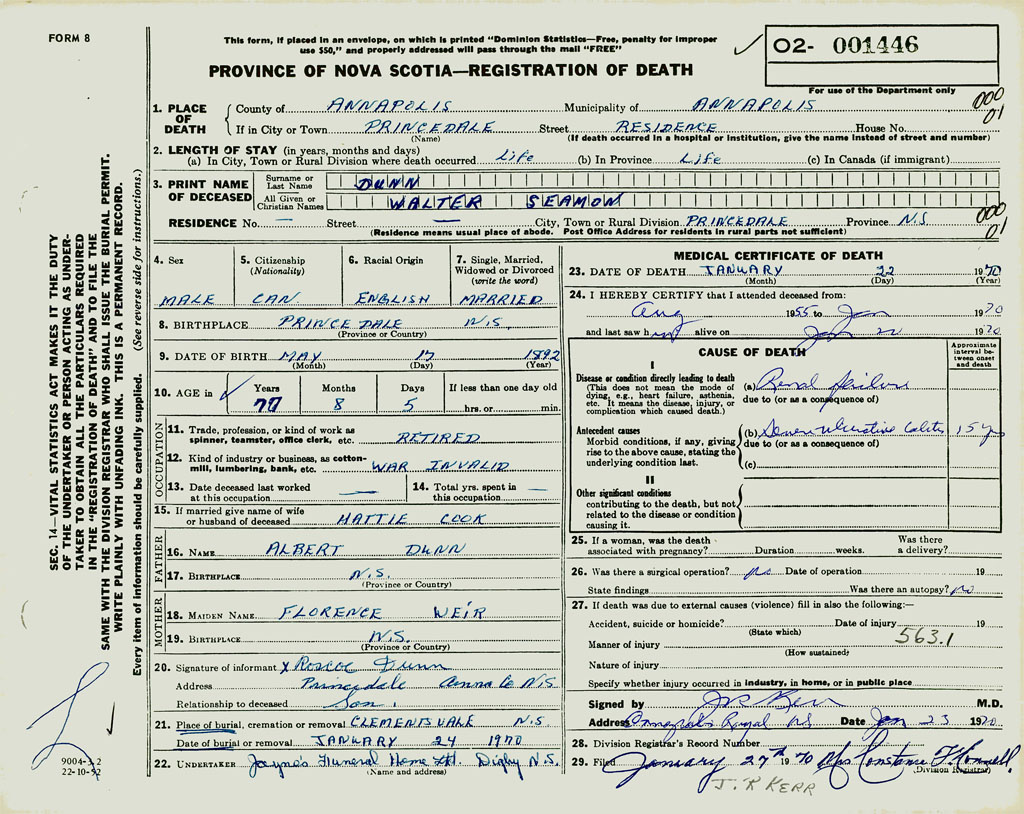 FORM 8
This form, if placed in an envelope, on which is printed "Dominion Statistics—Free, penalty for improper
use $50," and properly addressed will pass through the mail "FREE"
02- 001446
PROVINCE OF NOVA SCOTIA—REGISTRATION OF DEATH
For use of the Department only
000
01
1. PLACE OF DEATH
County of ANNAPOLIS Municipality of ANNAPOLIS
If in City or Town PRINCEDALE Street RESIDENCE House No.
(Name) (If death occurred in a hospital or institution, give the name instead of street and number)
2. LENGTH OF STAY (in years, months and days)
(a) In City, Town or Rural Division where death occurred Life (b) In Province Life (c) In Canada (if immigrant)
3. PRINT NAME OF DECEASED
Surname or Last Name DUNN
All Given or Christian Names WALTER SEAMON
RESIDENCE No. — Street — City, Town or Rural Division PRINCEDALE Province N.S.
000
01
(Residence means usual place of abode. Post Office Address for residents in rural parts not sufficient)
4. Sex
MALE
5. Citizenship
(Nationality)
CAN.
6. Racial Origin
ENGLISH
7. Single, Married,
Widowed or Divorced
(write the word)
MARRIED
8. BIRTHPLACE PRINCE DALE N.S.
(Province or Country)
9. DATE OF BIRTH MAY 17 1892
(Month) (Day) (Year)
10. AGE in
Years Months Days If less than one day old
77 8 5 hrs. or min.
OCCUPATION
11. Trade, profession, or kind of work as
spinner, teamster, office clerk, etc. RETIRED
12. Kind of industry or business, as cotton-
mill, lumbering, bank, etc. WAR INVALID
13. Date deceased last worked
at this occupation —
14. Total yrs. spent in
this occupation —
15. If married give name of wife
or husband of deceased HATTIE COOK
FATHER
16. NAME ALBERT DUNN
17. BIRTHPLACE N.S.
(Province or Country)
MOTHER
18. MAIDEN NAME FLORENCE WEIR
19. BIRTHPLACE N.S.
(Province or Country)
20. Signature of informant X Roscoe Dunn
Address Princedale Anna Co N.S
Relationship to deceased Son.
21. Place of burial, cremation or removal CLEMENTSVALE N.S.
Date of burial or removal JANUARY 24 1970
22. UNDERTAKER Jayne's Funeral Home Ltd. Digby N.S.
(Name and address)
MEDICAL CERTIFICATE OF DEATH
23. DATE OF DEATH JANUARY 22 1970
(Month) (Day) (Year)
24. I HEREBY CERTIFY that I attended deceased from:
Aug 1955 to Jan 1970
and last saw him alive on Jan 22 1970
CAUSE OF DEATH
Approximate
interval be-
tween onset
and death
I
Disease or condition directly leading to death
(This does not mean the mode of
dying, e.g., heart failure, asthenia,
etc. It means the disease, injury, or
complication which caused death.)
(a) Renal failure
due to (or as a consequence of)
Antecedent causes
Morbid conditions, if any, giving
rise to the above cause, stating the
underlying condition last.
(b) Ulcerative Colitis 15 y
due to (or as a consequence of)
(c)
II
Other significant conditions
contributing to the death, but not
related to the disease or condition
causing it.
25. If a woman, was the death
associated with pregnancy? Duration weeks. Was there
a delivery?
26. Was there a surgical operation? No Date of operation 19
State findings Was there an autopsy? No
27. If death was due to external causes (violence) fill in also the following:—
Accident, suicide or homicide? Date of injury 19
(State which)
563.1
Manner of injury
(How sustained)
Nature of injury
Specify whether injury occurred in industry, in home, or in public place
Signed by J R Kerr M.D.
Address Annapolis Royal NS Date Jan 23 1970
28. Division Registrar's Record Number
29. Filed January 27th 1970 Mrs Constance
(Division Registrar)
J. R KERR
SEC. 14—VITAL STATISTICS ACT MAKES IT THE DUTY
OF THE UNDERTAKER OR PERSON ACTING AS UNDER-
TAKER TO OBTAIN ALL THE PARTICULARS REQUIRED
IN THE "REGISTRATION OF DEATH" AND TO FILE THE
SAME WITH THE DIVISION REGISTRAR WHO SHALL ISSUE THE BURIAL PERMIT.
WRITE PLAINLY WITH UNFADING INK. THIS IS A PERMANENT RECORD.
Every item of information should be carefully supplied. (See reverse side for instructions.)
22-10-52